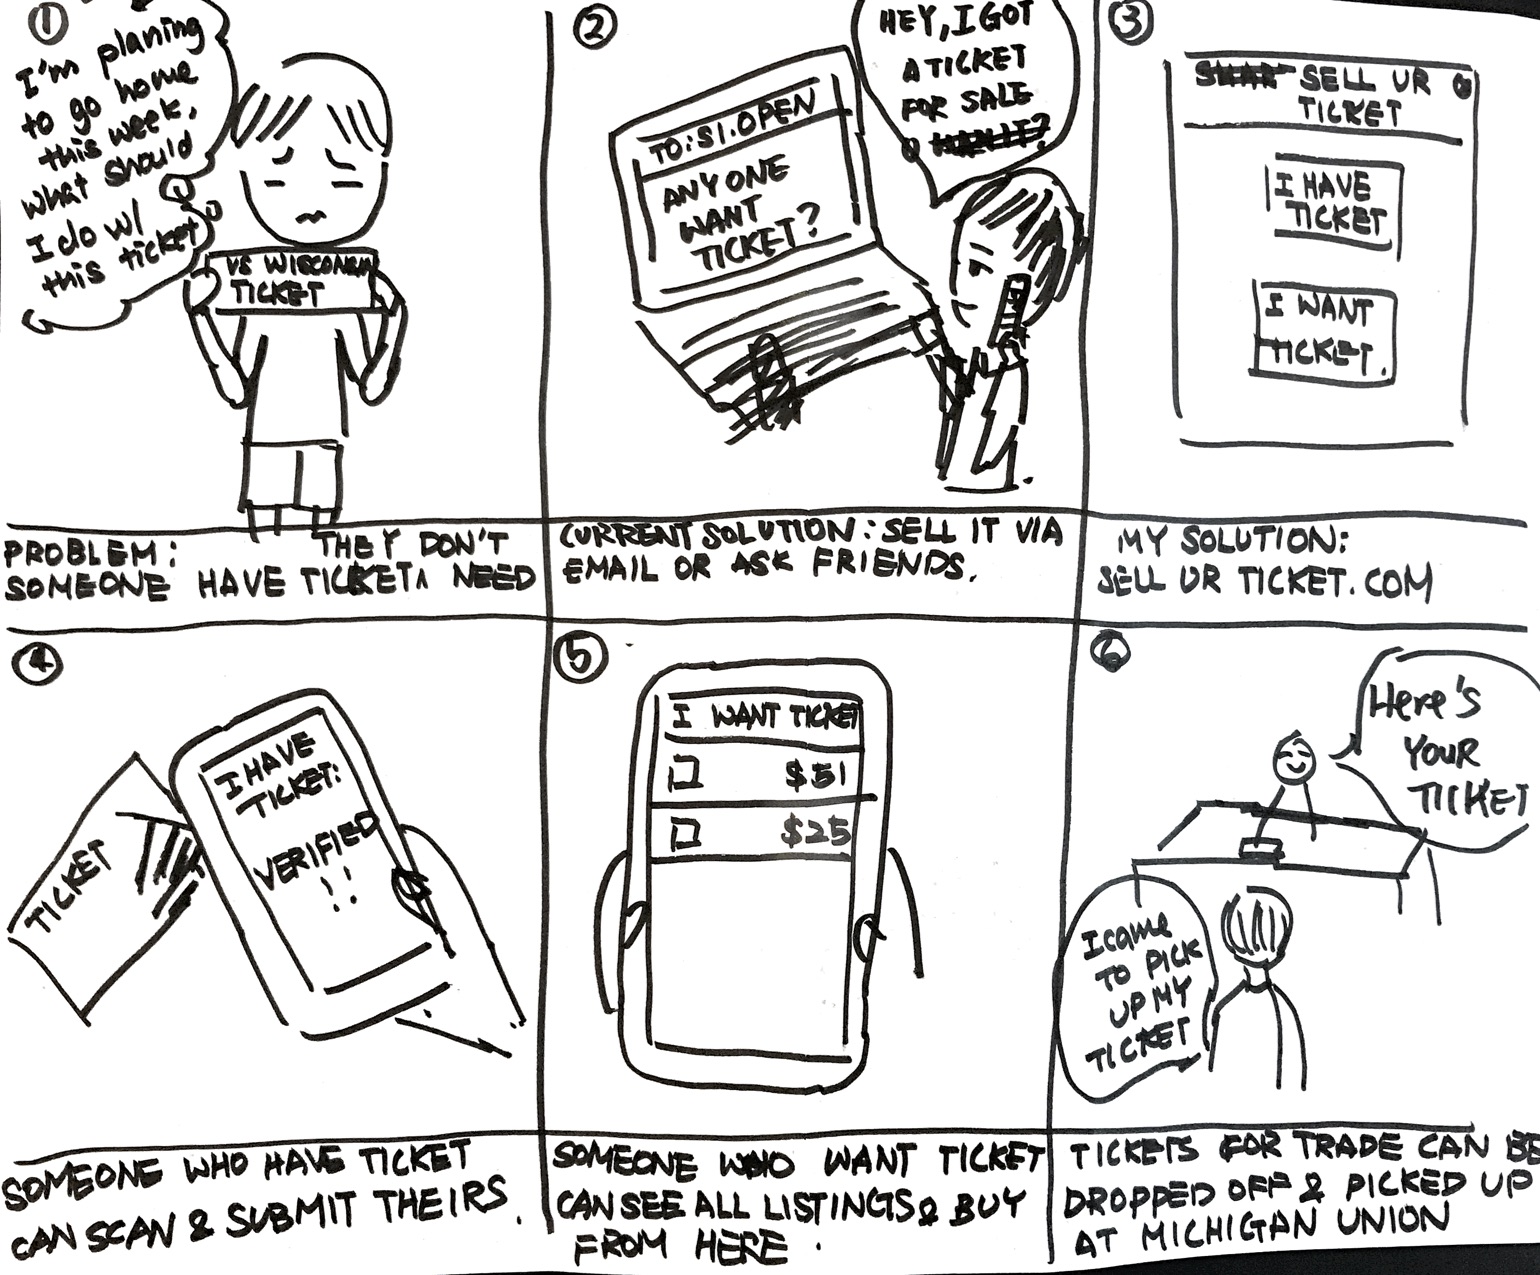 ①
I'm planing
to go home
this week,
what should
I do w/
this ticket
VS WISCONSIN
TICKET
PROBLEM: THEY DON'T
SOMEONE HAVE TICKET ∧ NEED
②
HEY, I GOT
A TICKET
FOR SALE
TO: SI.OPEN
ANYONE
WANT
TICKET?
CURRENT SOLUTION: SELL IT VIA
EMAIL OR ASK FRIENDS.
③
SELL UR
TICKET
I HAVE
TICKET
I WANT
TICKET.
MY SOLUTION:
SELL UR TICKET.COM
④
TICKET
I HAVE
TICKET:
VERIFIED
!!
SOMEONE WHO HAVE TICKET
CAN SCAN & SUBMIT THEIRS.
⑤
I WANT TICKET
$51
$25
SOMEONE WHO WANT TICKET
CAN SEE ALL LISTINGS & BUY
FROM HERE.
⑥
Here's
YOUR
TICKET
I came
TO PICK
UP MY
TICKET
TICKETS FOR TRADE CAN BE
DROPPED OFF & PICKED UP
AT MICHIGAN UNION